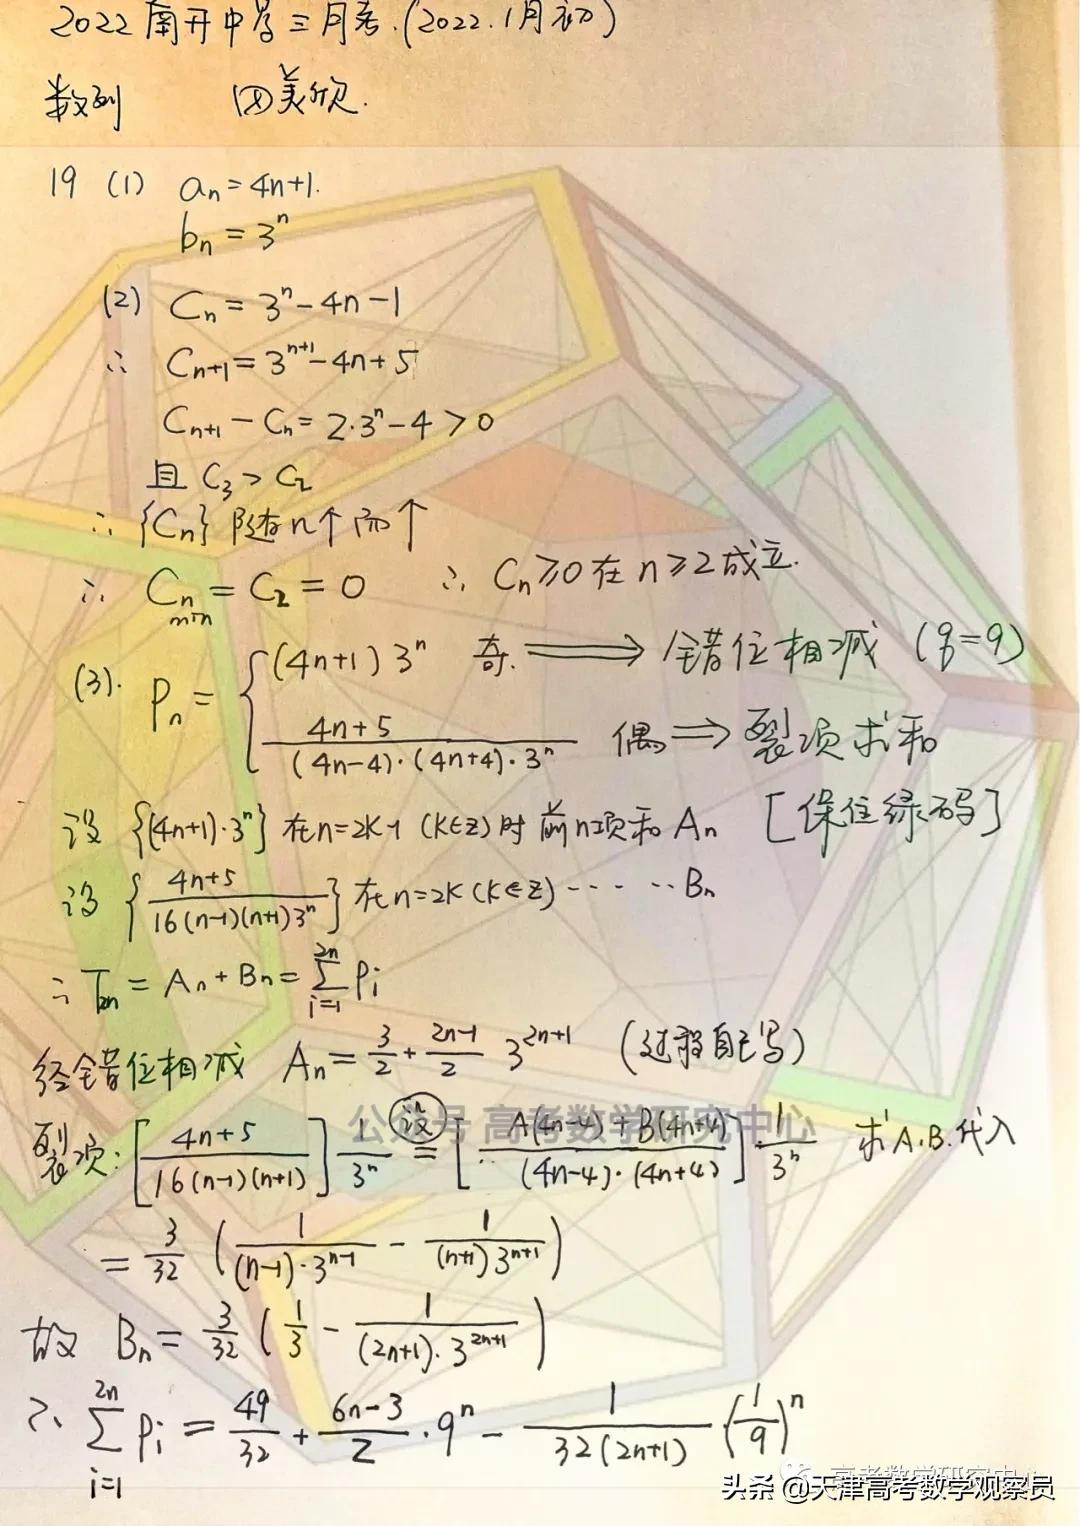 2022南开中学三月考.(2022.1月初)
数列 田美欣.
19 (1) aₙ=4n+1.
bₙ=3ⁿ
(2) Cₙ=3ⁿ-4n-1
∴ Cₙ₊₁=3ⁿ⁺¹-4n+5
Cₙ₊₁-Cₙ=2·3ⁿ-4>0
且 C₃>C₂
∴{Cₙ}随n↑而↑
∴ Cₙ min=C₂=0 ∴ Cₙ≥0在n≥2成立.
(3). Pₙ={(4n+1)3ⁿ 奇. ⟹ 错位相减 (q=9)
(4n+5)/((4n-4)·(4n+4)·3ⁿ) 偶 ⟹ 裂项求和
[保住绿码]
设{(4n+1)·3ⁿ}在n=2K-1(K∈Z)时前n项和Aₙ
设{(4n+5)/(16(n-1)(n+1)3ⁿ)}在n=2K(K∈Z)······Bₙ
∴ T₂ₙ=Aₙ+Bₙ=∑_{i=1}^{2n} Pᵢ
经错位相减 Aₙ=3/2+(2n-1)/2 3²ⁿ⁺¹ (过程自己写)
裂项:[(4n+5)/(16(n-1)(n+1))]1/3ⁿ 设= [(A(4n-4)+B(4n+4))/((4n-4)·(4n+4))]1/3ⁿ 求A.B.代入
=3/32(1/((n-1)·3ⁿ⁻¹)-1/((n+1)3ⁿ⁺¹))
故 Bₙ=3/32(1/3-1/((2n+1)·3²ⁿ⁺¹))
∴ ∑_{i=1}^{2n} Pᵢ=49/32+(6n-3)/2·9ⁿ-1/(32(2n+1))·(1/9)ⁿ
公众号 高考数学研究中心
高考数学研究中心
头条 @天津高考数学观察员